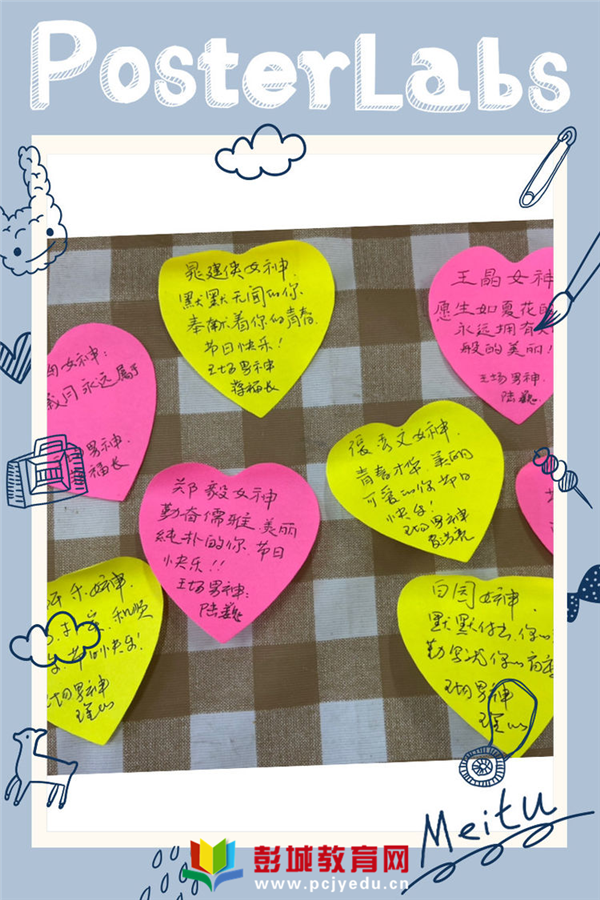 PosterLabs
晁建侠女神:
默默无闻的你
奉献着你的青春.
节日快乐!
王场男神
蒋福长
王晶女神
愿生如夏花的
永远拥有
般的美丽!
王场男神.
女神:
月永远属于
男神.
福长
张秀文女神.
青春才华、美丽
可爱的你节日
快乐!
王场男神
郑毅女神
勤奋儒雅、美丽
纯朴的你、节日
快乐!!
王场男神:
乐女神.
快乐!
王场男神
白园女神.
默默付出,你
王场男神
Meitu
彭城教育网
www.pcjyedu.cn